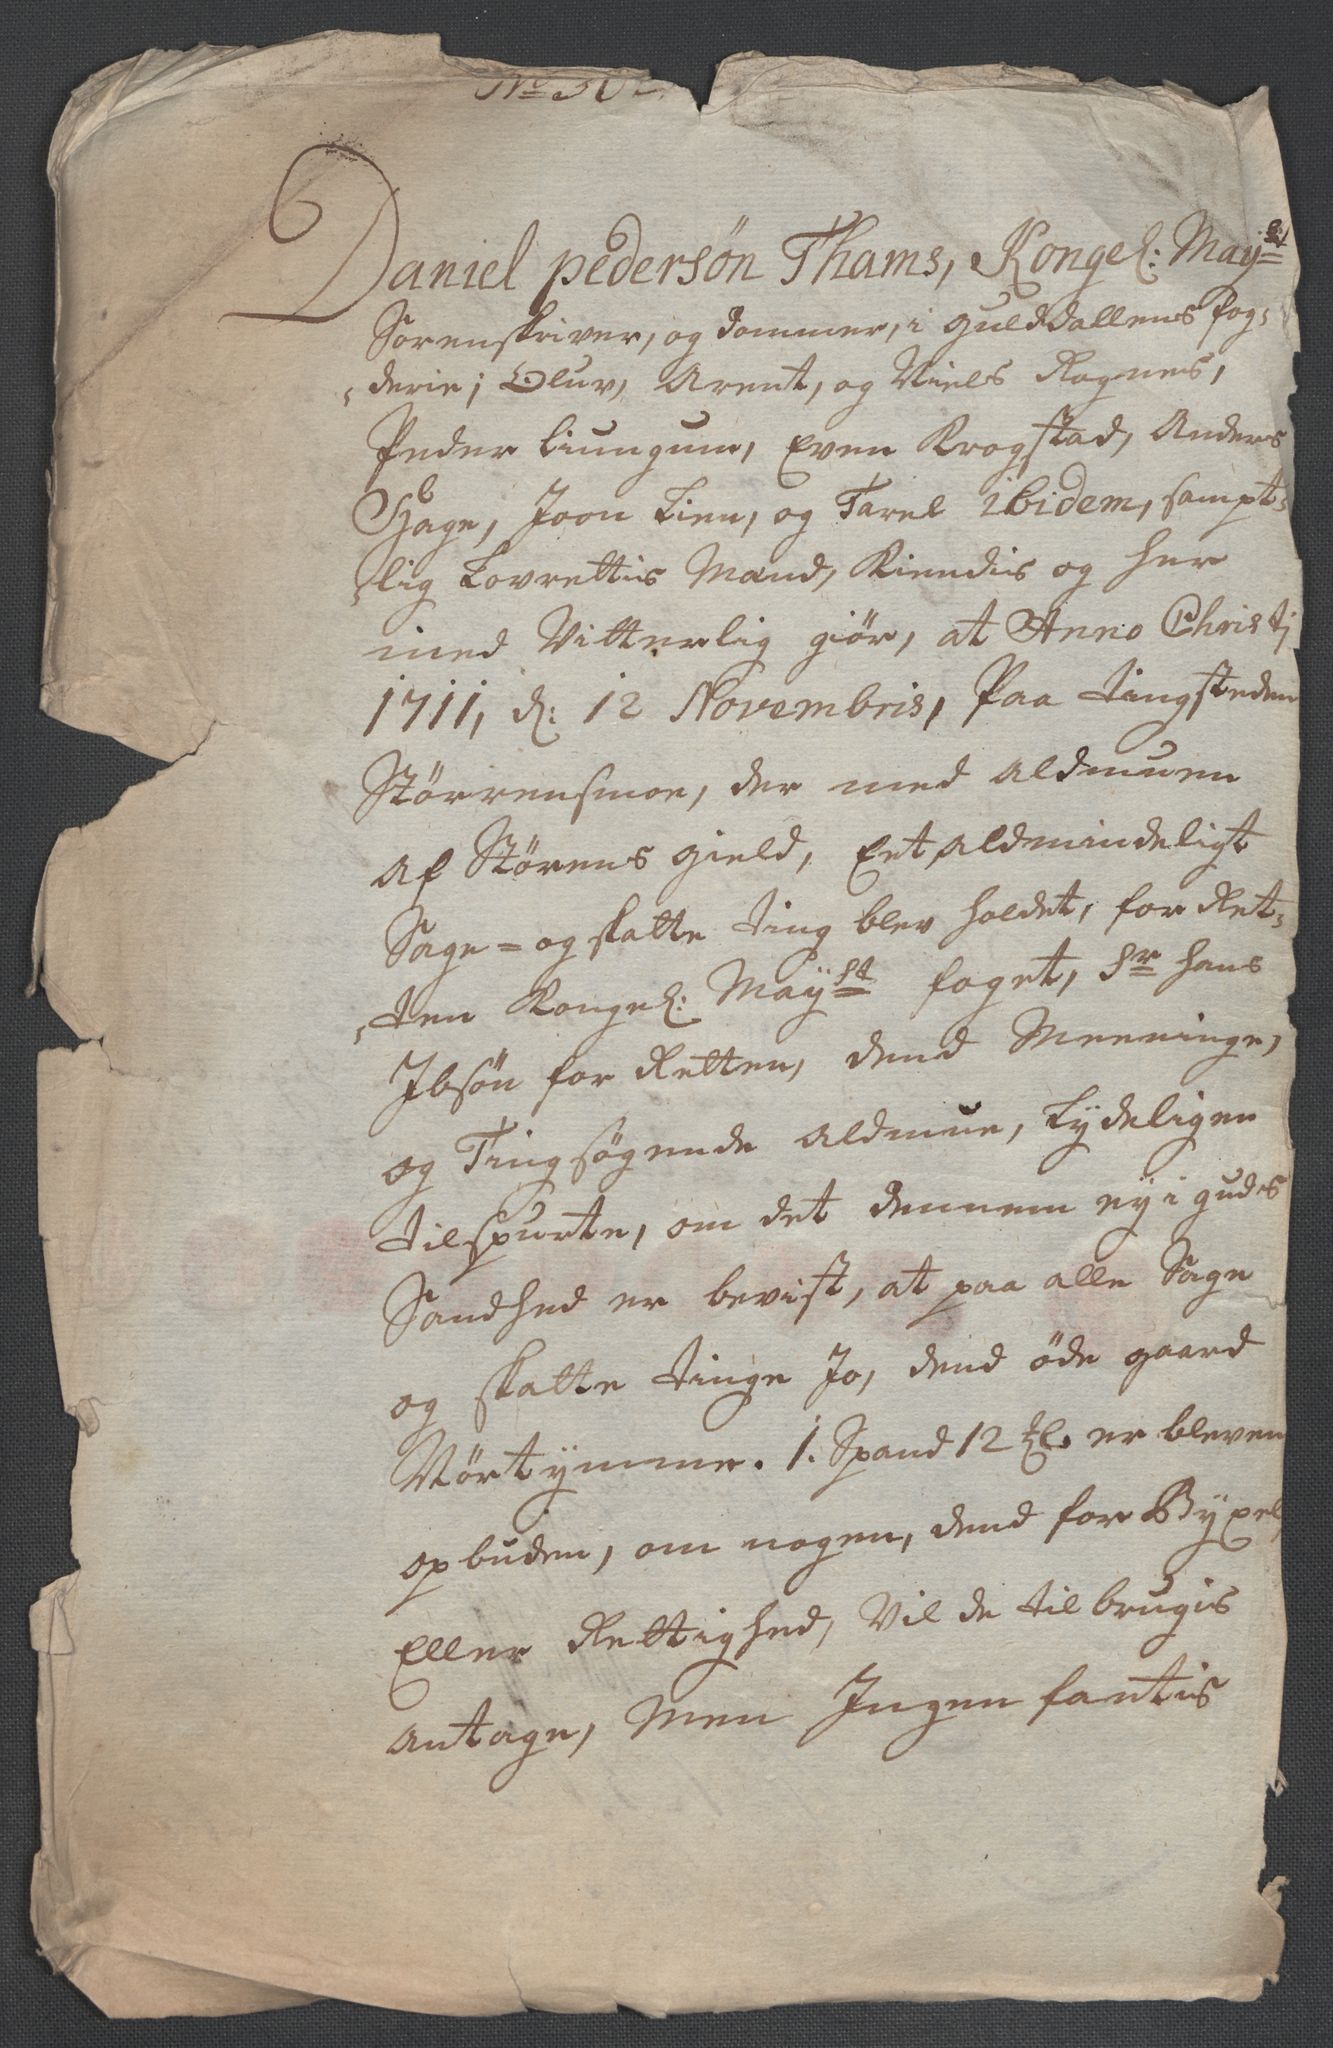 Daniel Pedersøn Thams, Kongel: May:
Sorenskriver, og dommer, i Gulddallens fog-
derie; Oluv, Arent, og Niels Rognes,
Peder Liungum, Even Krogstad, Anders
Hage, Joon Lien, og Tarel ibidem, sampt-
lig Lovrettis Mænd, Kiendis og her
med Vitterlig giør, at Anno Christj
1711, d: 12 Novembris, Paa tingsteden
Størrensmoe, der med Aldmuen
af Størens gield, Eet Aldmindeligt
Sage- og skatte ting blev holdet, for Ret-
ten Kongel: Mayst foget, Sr hans
Ibsøn for Retten, dend Meeninge,
og Tingsøgende Aldmue, Lydeligen
tilspurte, om det dennem ey i guds
Sandhed er bevist, at paa alle Sage
og skatte tinge Jo, dend øde gaard
Wørtømme. 1. Spand 12 . er bleven
opbuden, om nogen, dend for Bygsel,
Eller Rettighed, Vil de til brugis
Antage, Men Ingen fantis